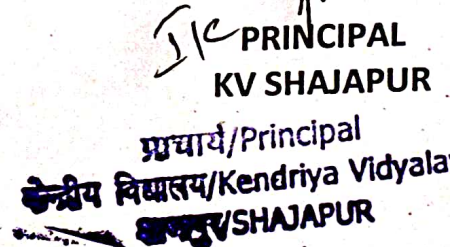 I/C PRINCIPAL
KV SHAJAPUR
प्राचार्य/Principal
केन्द्रीय विद्यालय/Kendriya Vidyala
शाजापुर/SHAJAPUR